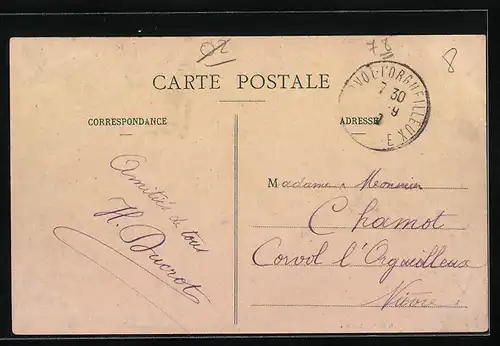 02
78
8
CARTE POSTALE
CORRESPONDANCE
ADRESSE
CORVOL-L'ORGUEILLEUX
7 30
9
E
Amitiés de tous
H. Ducrot
Madame Meunier
Chamot
Corvol l'Orgueilleux
Nièvre